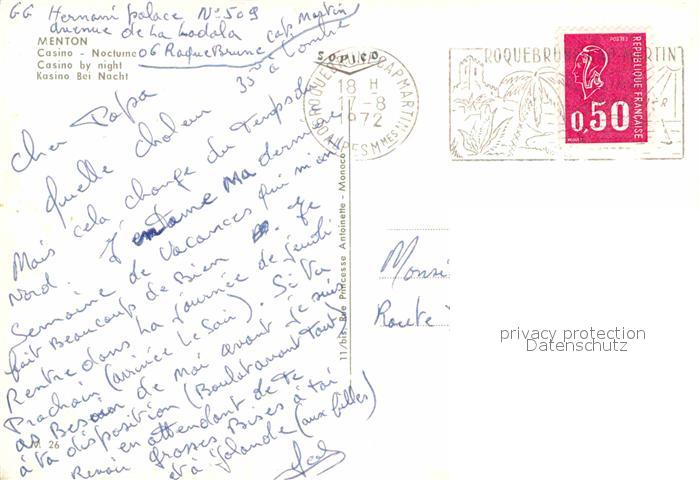 GG Hernani palace N° 509
Avenue de la Madala Cap Martin
06 Roquebrune
MENTON
Casino - Nocturne
Casino by night
Kasino Bei Nacht
35° à l'ombre
Cher Papa
Quelle chaleur
Mais cela change du Temps du
Nord. J'entame Ma dernière
Semaine de Vacances qui m'ont
fait Beaucoup de Bien. Je
Rentre dans la journée de jeudi
Prochain (arrivée Le Soir). Si Tu
as Besoin de Moi avant je suis
à Ta disposition (Boulot avant Tout)
en attendant de te
Revoir grosses Bises à toi
et à Yolande (aux filles)
M. 26
SOPICO
11/bis, Rue Princesse Antoinette - Monaco
ROQUEBRUNE CAP MARTIN
18 H
17-8
1972
06 ALPES MMES
ROQUEBRUNE CAP MARTIN
POSTES
REPUBLIQUE FRANÇAISE
0,50
Monsi
Route
privacy protection
Datenschutz